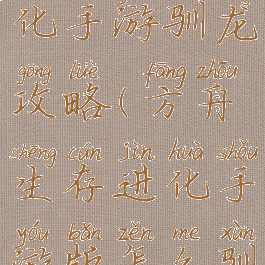 化手游驯龙
gōng lüè fāng zhōu
攻略(方舟
shēng cún jìn huà shǒu
生存进化手
yóu bǎn zěn me xùn
游版怎么驯